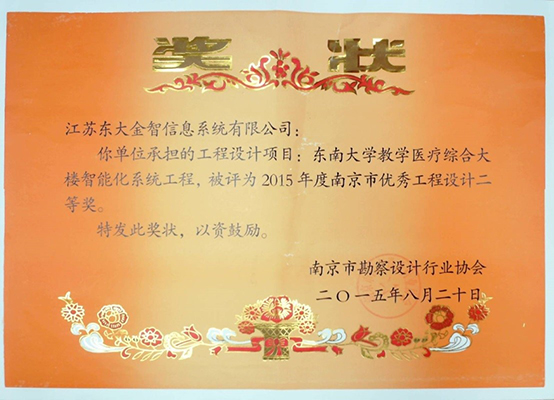 奖状
江苏东大金智信息系统有限公司：
你单位承担的工程设计项目：东南大学教学医疗综合大
楼智能化系统工程，被评为 2015 年度南京市优秀工程设计二
等奖。
特发此奖状，以资鼓励。
南京市勘察设计行业协会
二〇一五年八月二十日